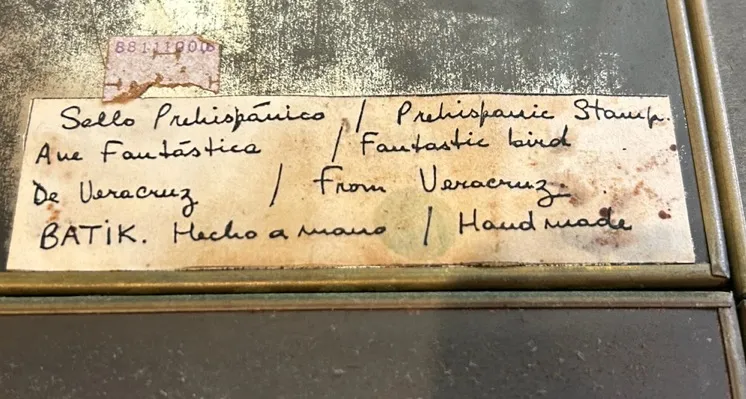 88111000
Sello Prehispánico / Prehispanic Stamp.
Ave Fantástica / Fantastic bird
De Veracruz / From Veracruz
BATIK. Hecho a mano / Handmade